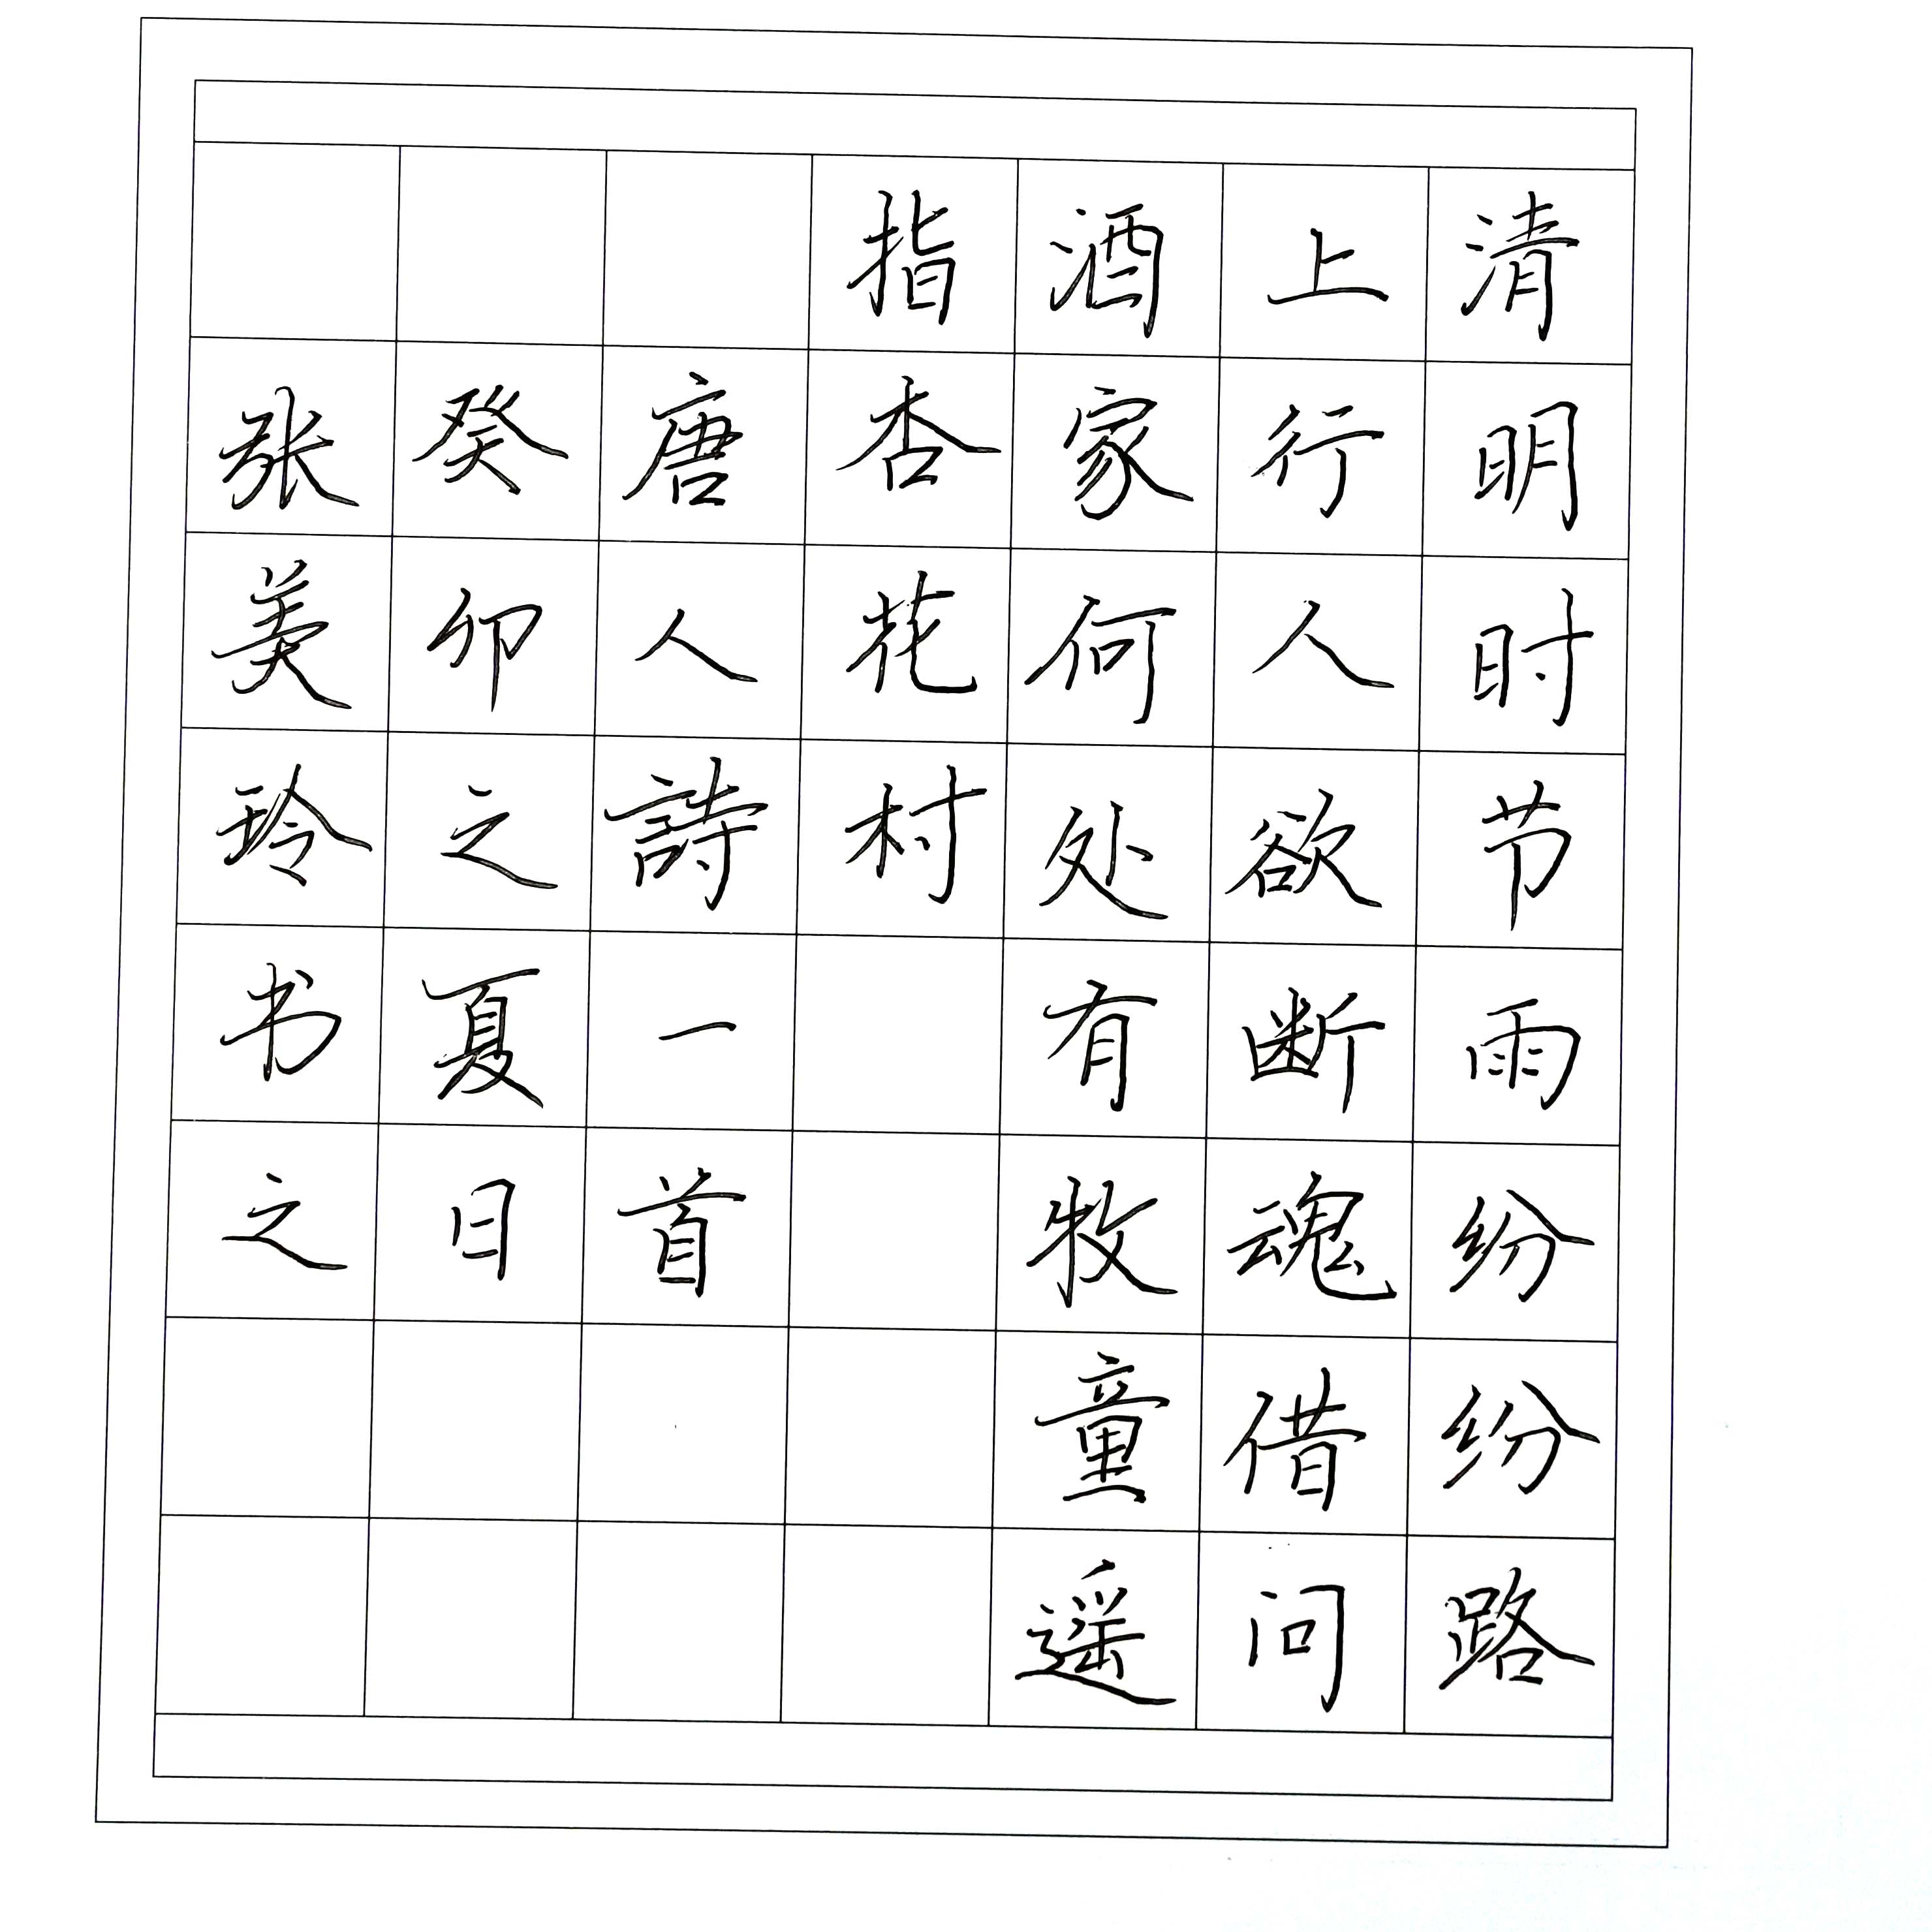 清明时节雨纷纷路
上行人欲断魂借问
酒家何处有牧童遥
指杏花村
唐人詩一首
癸卯之夏日
张美玲书之